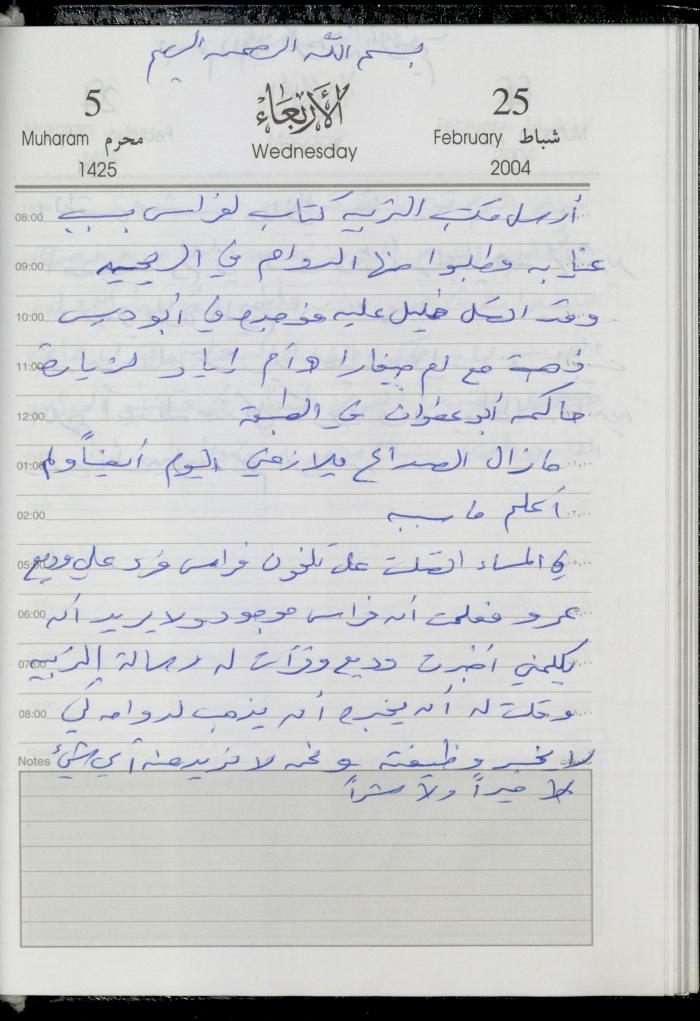 بسم الله الرحمن الرحيم
5 الأربعاء 25
Muharam محرم Wednesday February شباط
1425 2004
08:00 أرسل مكتب التربيه كتاب لفراس بسبب
09:00 غيا به وطلبوا منه الدوام في
10:00 وقد اتصل خليل عليه فوجده في أبو ديبس
11:00 ذهبت مع ام صغارا وأم اياد لزيارة
12:00 حاكمه أبو عفوان في الطبقة
01:00 مازال الصداع يلازمني اليوم أيضاً ولم
02:00 أعلم ما سببه
05:00 في المساء اتصلت على تلفون فراس فرد علي وديع
06:00 عمرو فعلمت أنه فراس موجود ولا يريد أن
07:00 يكلمني أخبرت وديع وقرأت له رسالة التربيه
08:00 وقلت له أن يخبره أن يذهب لدوامه كي
Notes لا يخسر وظيفته ونحن لا نريد منه أي شيء
لا خيراً ولا شراً